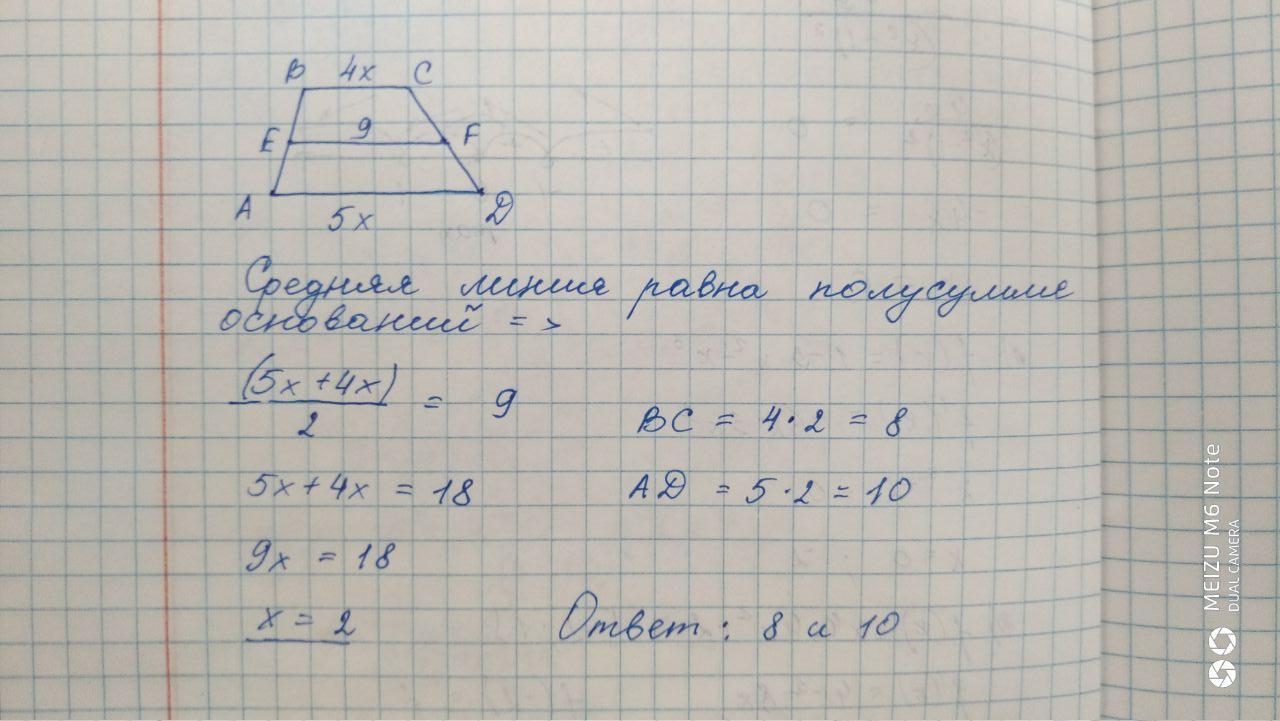 B 4x C
E 9 F
A D
5x
Средняя линия равна полусумме
оснований =>
(5x + 4x)
2
= 9
BC = 4·2 = 8
5x + 4x = 18
AD = 5·2 = 10
9x = 18
x = 2
Ответ: 8 и 10
MEIZU M6 Note
DUAL CAMERA